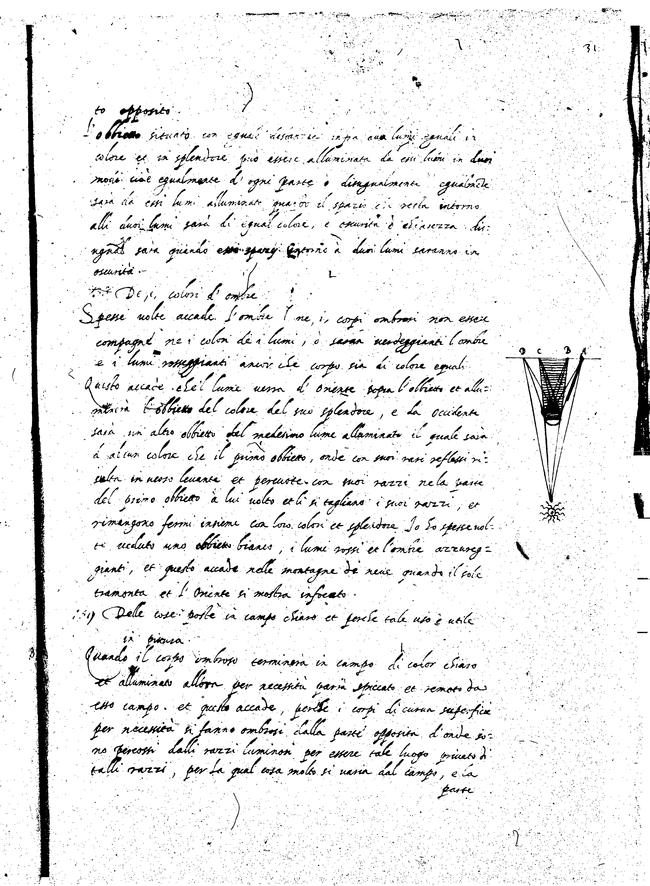 31
to opposito.
L'obbietto situato con equal distantie infra dua lumi equali in
colore et in splendore può essere alluminata da essi lumi in duoi
modi cioè egualmente d'ogni parte o disugualmente egualmente
sara da essi lumi alluminato quando il spazio che resta intorno
alli duoi lumi sarà di equal colore, e oscurità e chiarezza dis:
ugual sara quando essi spazi intorno à duoi lumi saranno in
oscurità.
De i colori d'ombre
Spesse volte accade l'ombre ne i corpi ombrosi non esser
compagne ne i colori de i lumi, o saran verdeggianti l'ombre
e i lumi rosseggianti ancor che corpo sia di colore equali
Questo accade che'l lume verra d'oriente sopra l'obbietto et allu-
minera l'obbietto del colore del suo splendore, e da occidente
sarà un altro obbietto del medesimo lume alluminato il quale sarà
d'altro colore che il primo obbietto, onde con suoi razi reflessi ri-
salta inverso levante et percuotte con suoi razzi nela parte
del primo obbietto à lui volto et li si tagliano i suoi razzi, et
rimangono fermi insieme con loro colori et splendore Io ho spesse vol-
te veduto uno obbietto bianco, i lume rossi et l'ombre azzureg-
gianti, et questo accade nelle montagne de neve quando il sole
tramonta et l'Oriente si mostra infocato.
Delle cose poste in campo chiaro et perche tale uso è utile
in pittura.
Quando il corpo ombroso terminera in campo di color chiaro
et alluminato allora per necessità parrà spiccato et remoto da
esso campo. et questo accade, perche i corpi di curva superficie
per necessità si fanno ombrosi dalla parte opposita d'onde so-
no percossi dalli razzi luminosi per essere tale luogo privato di
talli razzi, per la qual cosa molto si varia dal campo, e la
parte
D C B A